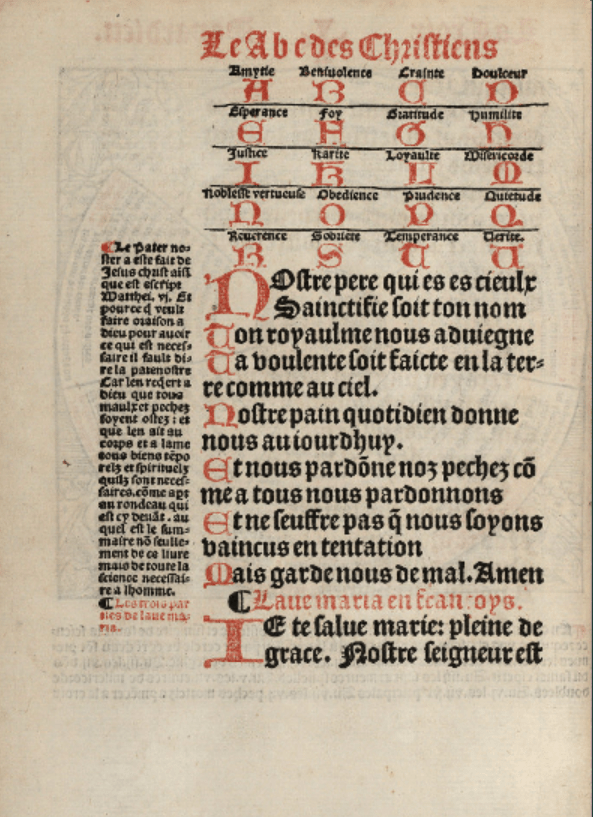 Le A b c des Christiens
Amytie Beniuolence Crainte Doulceur
A B C D
Esperance Foy Gratitude Humilite
E F G H
Justice Karite Loyaulte Misericorde
I K L M
Noblesse vertueuse Obedience Prudence Quietude
N O P Q
Reuerence Sobriete Temperance Verite.
R S T V
NOstre pere qui es es cieulx
Sainctifie soit ton nom
Ton royaulme nous aduiegne
Ta voulente soit faicte en la ter-
re comme au ciel.
Nostre pain quotidien donne
nous auiourdhuy.
Et nous pardōne noz pechez cō
me a tous nous pardonnons
Et ne seuffre pas q̄ nous soyons
vaincus en tentation
Mais garde nous de mal. Amen
¶ Laue maria en francoys.
IE te salue marie: pleine de
grace. Nostre seigneur est
¶ Le Pater no-
ster a este fait de
Jesus christ aisi
que est escript
Matthei. vj. Et
pource q̄ veult
faire oraison a
dieu pour auoir
ce qui est neces-
saire il fault di-
re la patenostre
Car len reqert a
dieu que tous
maulx et pechez
soyent ostez: et
que len ait au
corps et a lame
tous biens tēpo
relz et spirituelz
quilz sont neces-
saires. cōme apt
au rondeau qui
est cy deuāt. au
quel est le som-
maire nō seulle-
ment de ce liure
mais de toute la
science necessai-
re a lhomme.
¶ Les trois par
ties de laue ma-
ria.